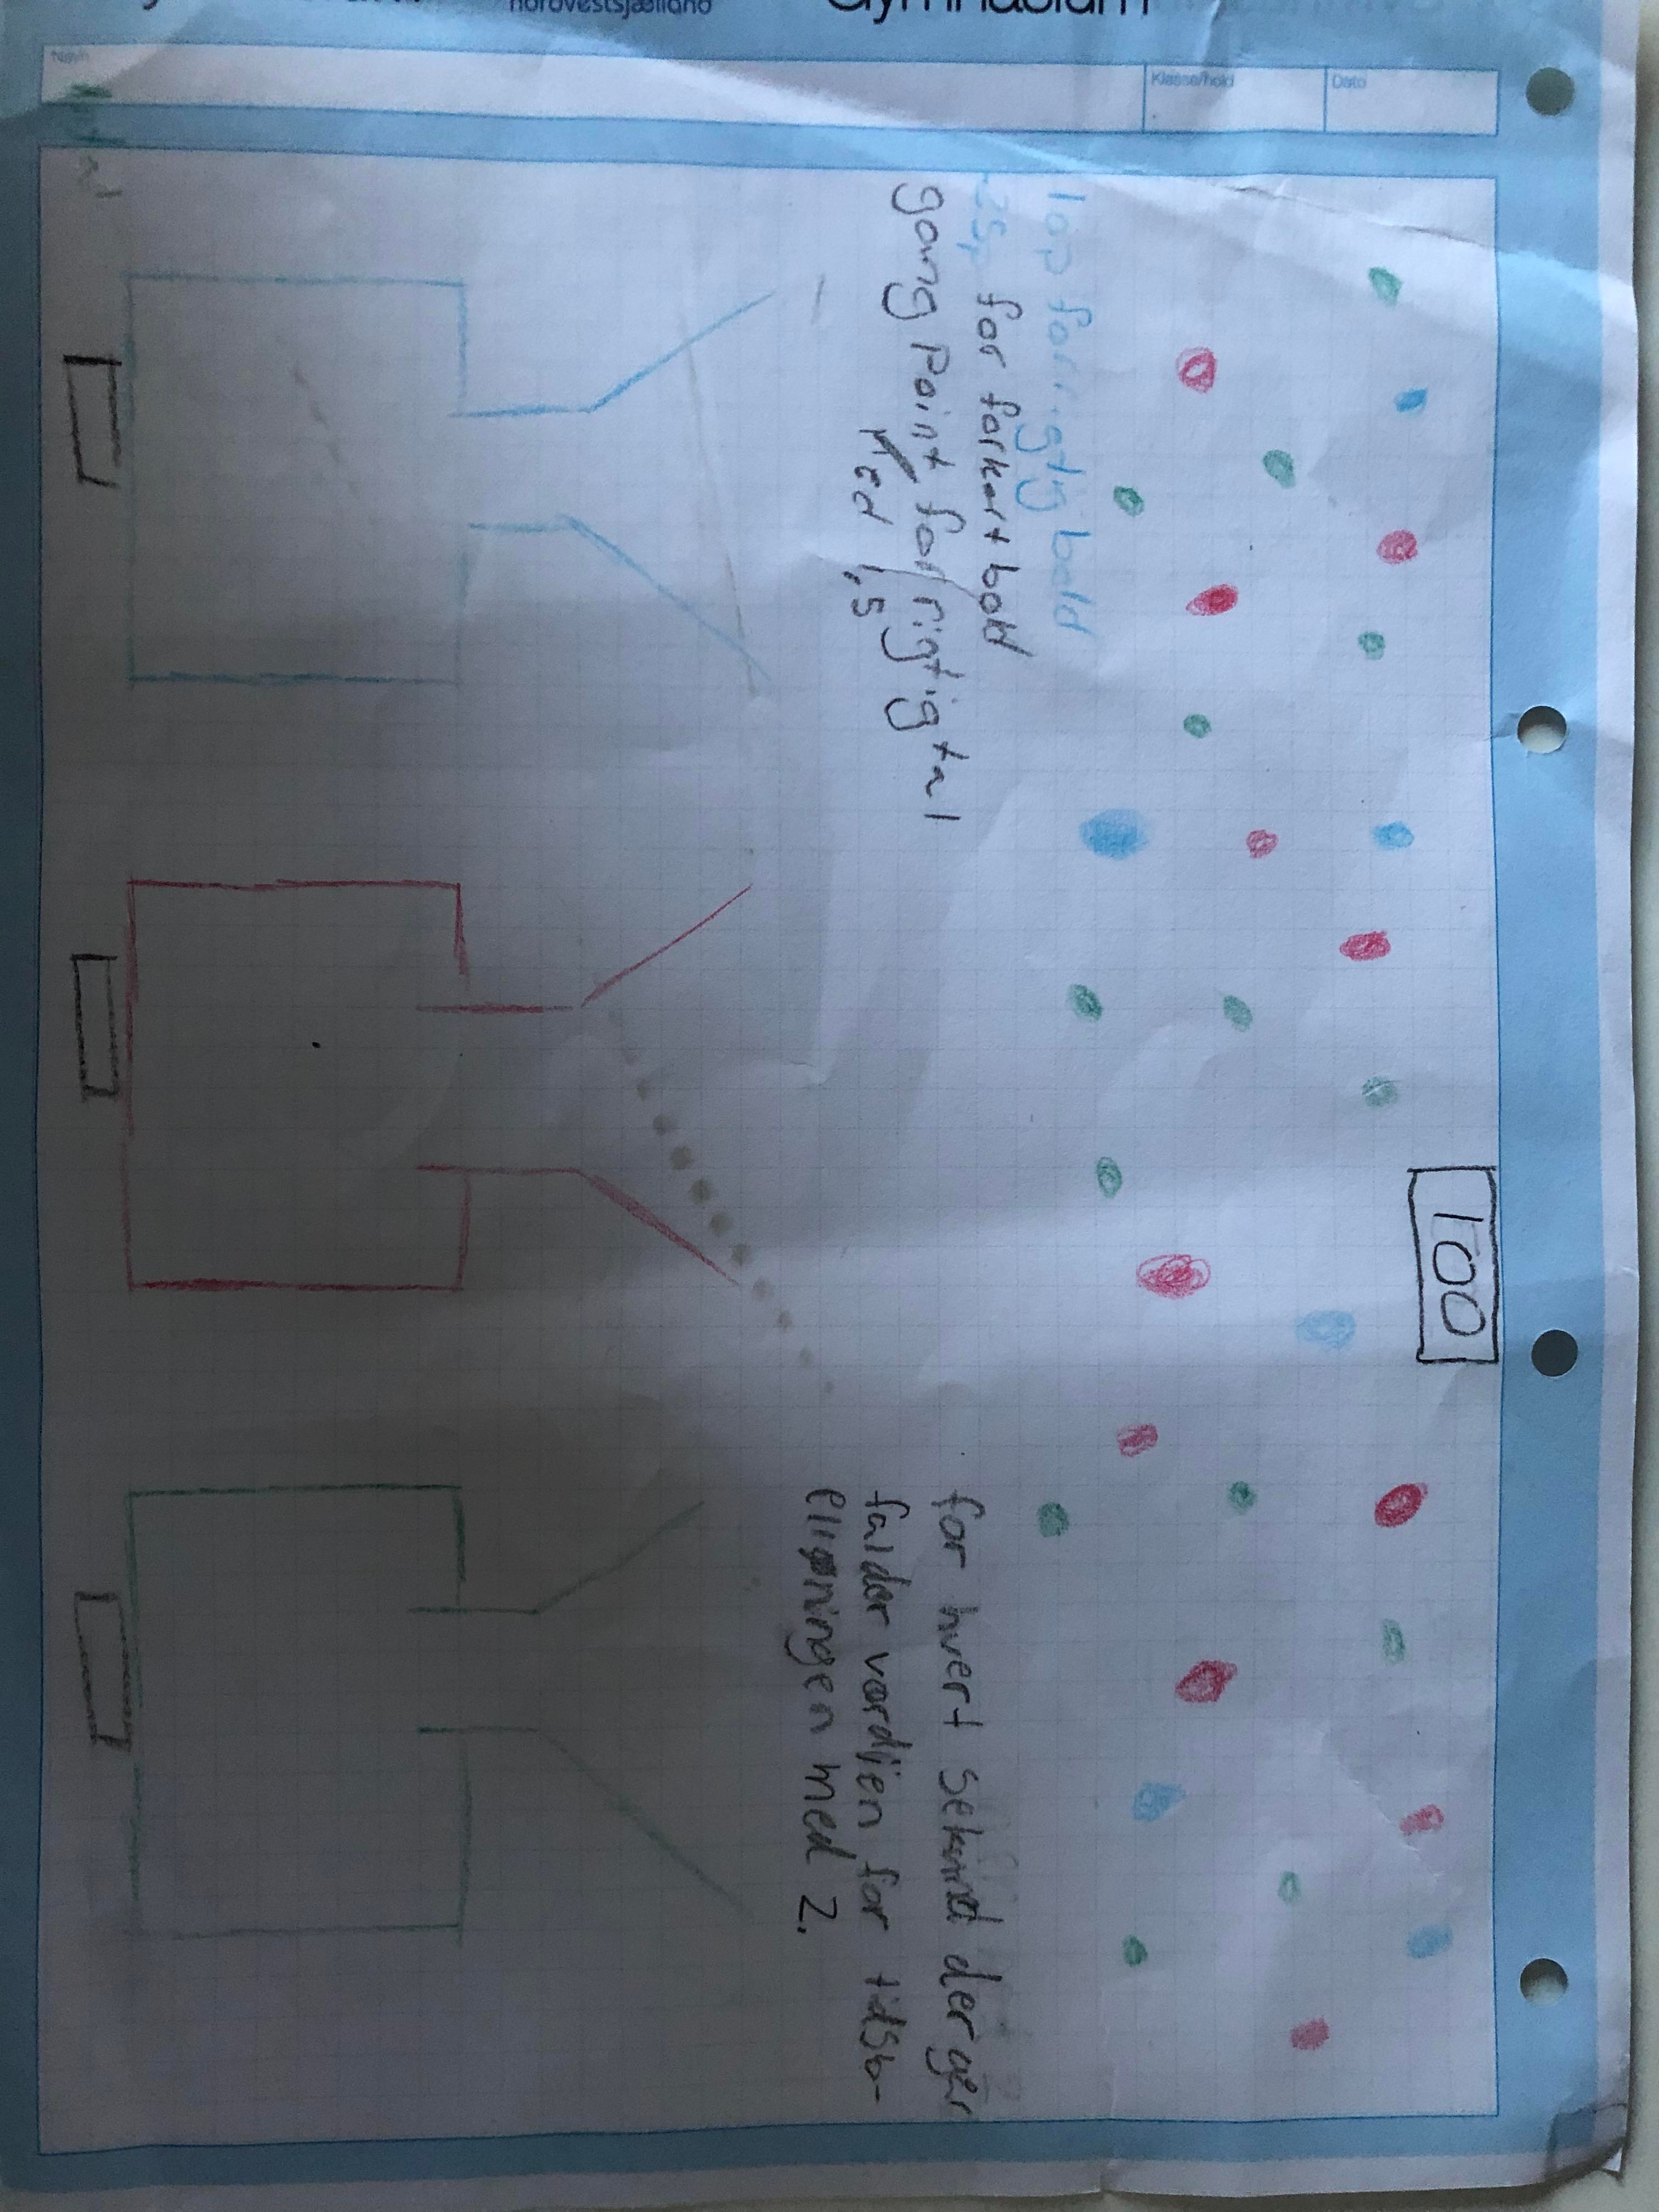 nordvestsjælland
Gymnasium
Navn
Klasse/hold
Dato
100
10p for rigtig bold
-25p for forkert bold
gang Point for rigtig tal
Med 1,5
for hvert sekund der går
falder værdien for tidsb-
elignningen med 2.